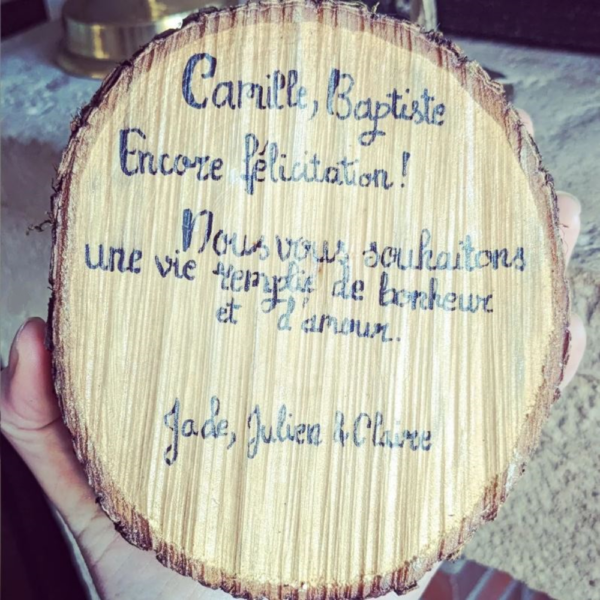 Camille, Baptiste
Encore félicitation!
Nous vous souhaitons
une vie remplie de bonheur
et d'amour.
Jade, Julien & Claire